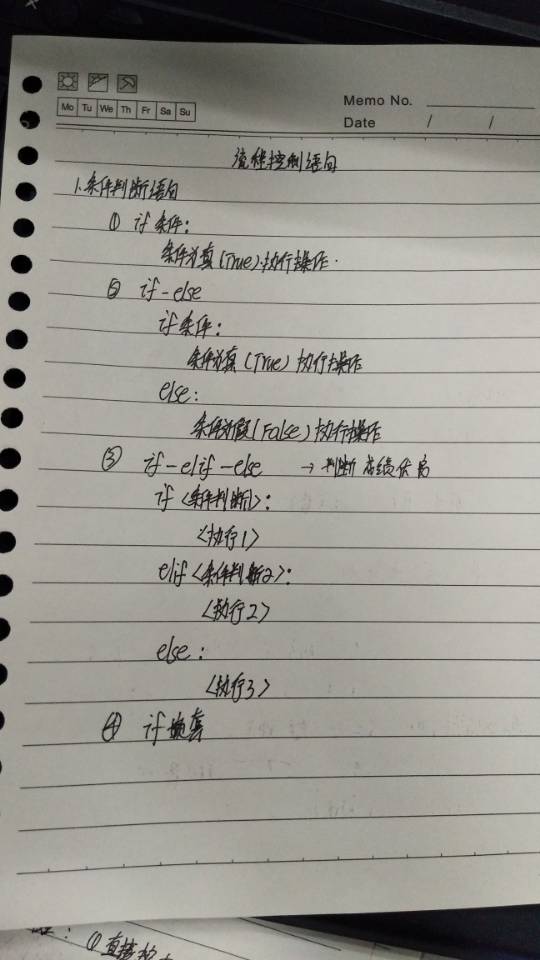 Mo Tu We Th Fr Sa Su
Memo No.
Date / /
流程控制语句
1.条件判断语句
① if 条件:
条件为真(True)执行操作.
② if-else
if 条件:
条件为真 (True) 执行操作
else:
条件为假(False)执行操作
③ if-elif-else → 判断成绩优高
if <条件判断1>:
<执行1>
elif <条件判断2>:
<执行2>
else:
<执行3>
④ if 嵌套
:①直接